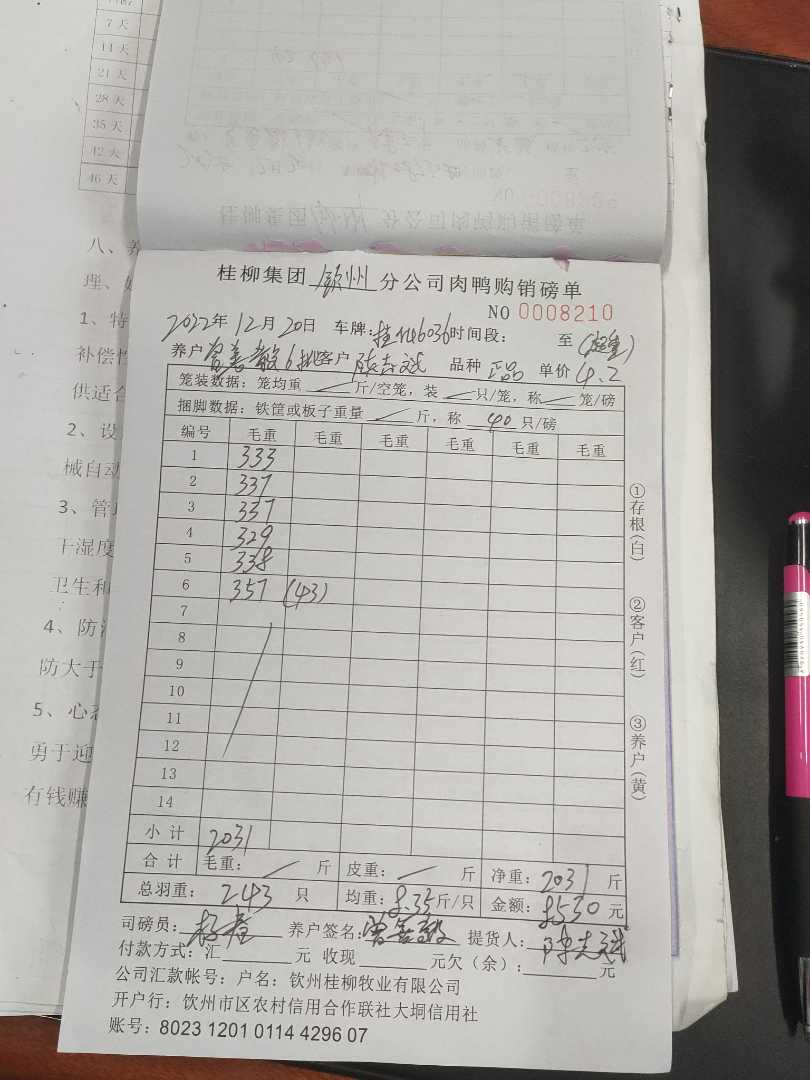 7天
14天
21天
28天
35天
42天
46天
八、养
理、
1、特
补偿性
供适合
2、设
械自动
3、管
干湿度
卫生和
4、防
防大于
5、心
勇于迎
有钱赚
桂柳集团 钦州 分公司肉鸭购销磅单
NO 0008210
2022年12月20日 车牌: 时间段: 至
养户 6批 客户 品种 正品 单价 4.2
笼装数据: 笼均重 斤/空笼, 装 只/笼, 称 笼/磅
捆脚数据: 铁筐或板子重量 斤, 称 40 只/磅
编号 毛重 毛重 毛重 毛重 毛重 毛重
1 333
2 337
3 337
4 329
5 338
6 357 (43)
7
8
9
10
11
12
13
14
小计 2031
合计 毛重: 斤 皮重: 斤 净重: 2031 斤
总羽重: 243 只 均重: 8.35 斤/只 金额: 8530 元
司磅员: 养户签名: 提货人:
付款方式: 汇 元 收现 元欠(余): 元
公司汇款帐号: 户名: 钦州桂柳牧业有限公司
开户行: 钦州市区农村信用合作联社大垌信用社
账号: 8023 1201 0114 4296 07
①存根(白)
②客户(红)
③养户(黄)